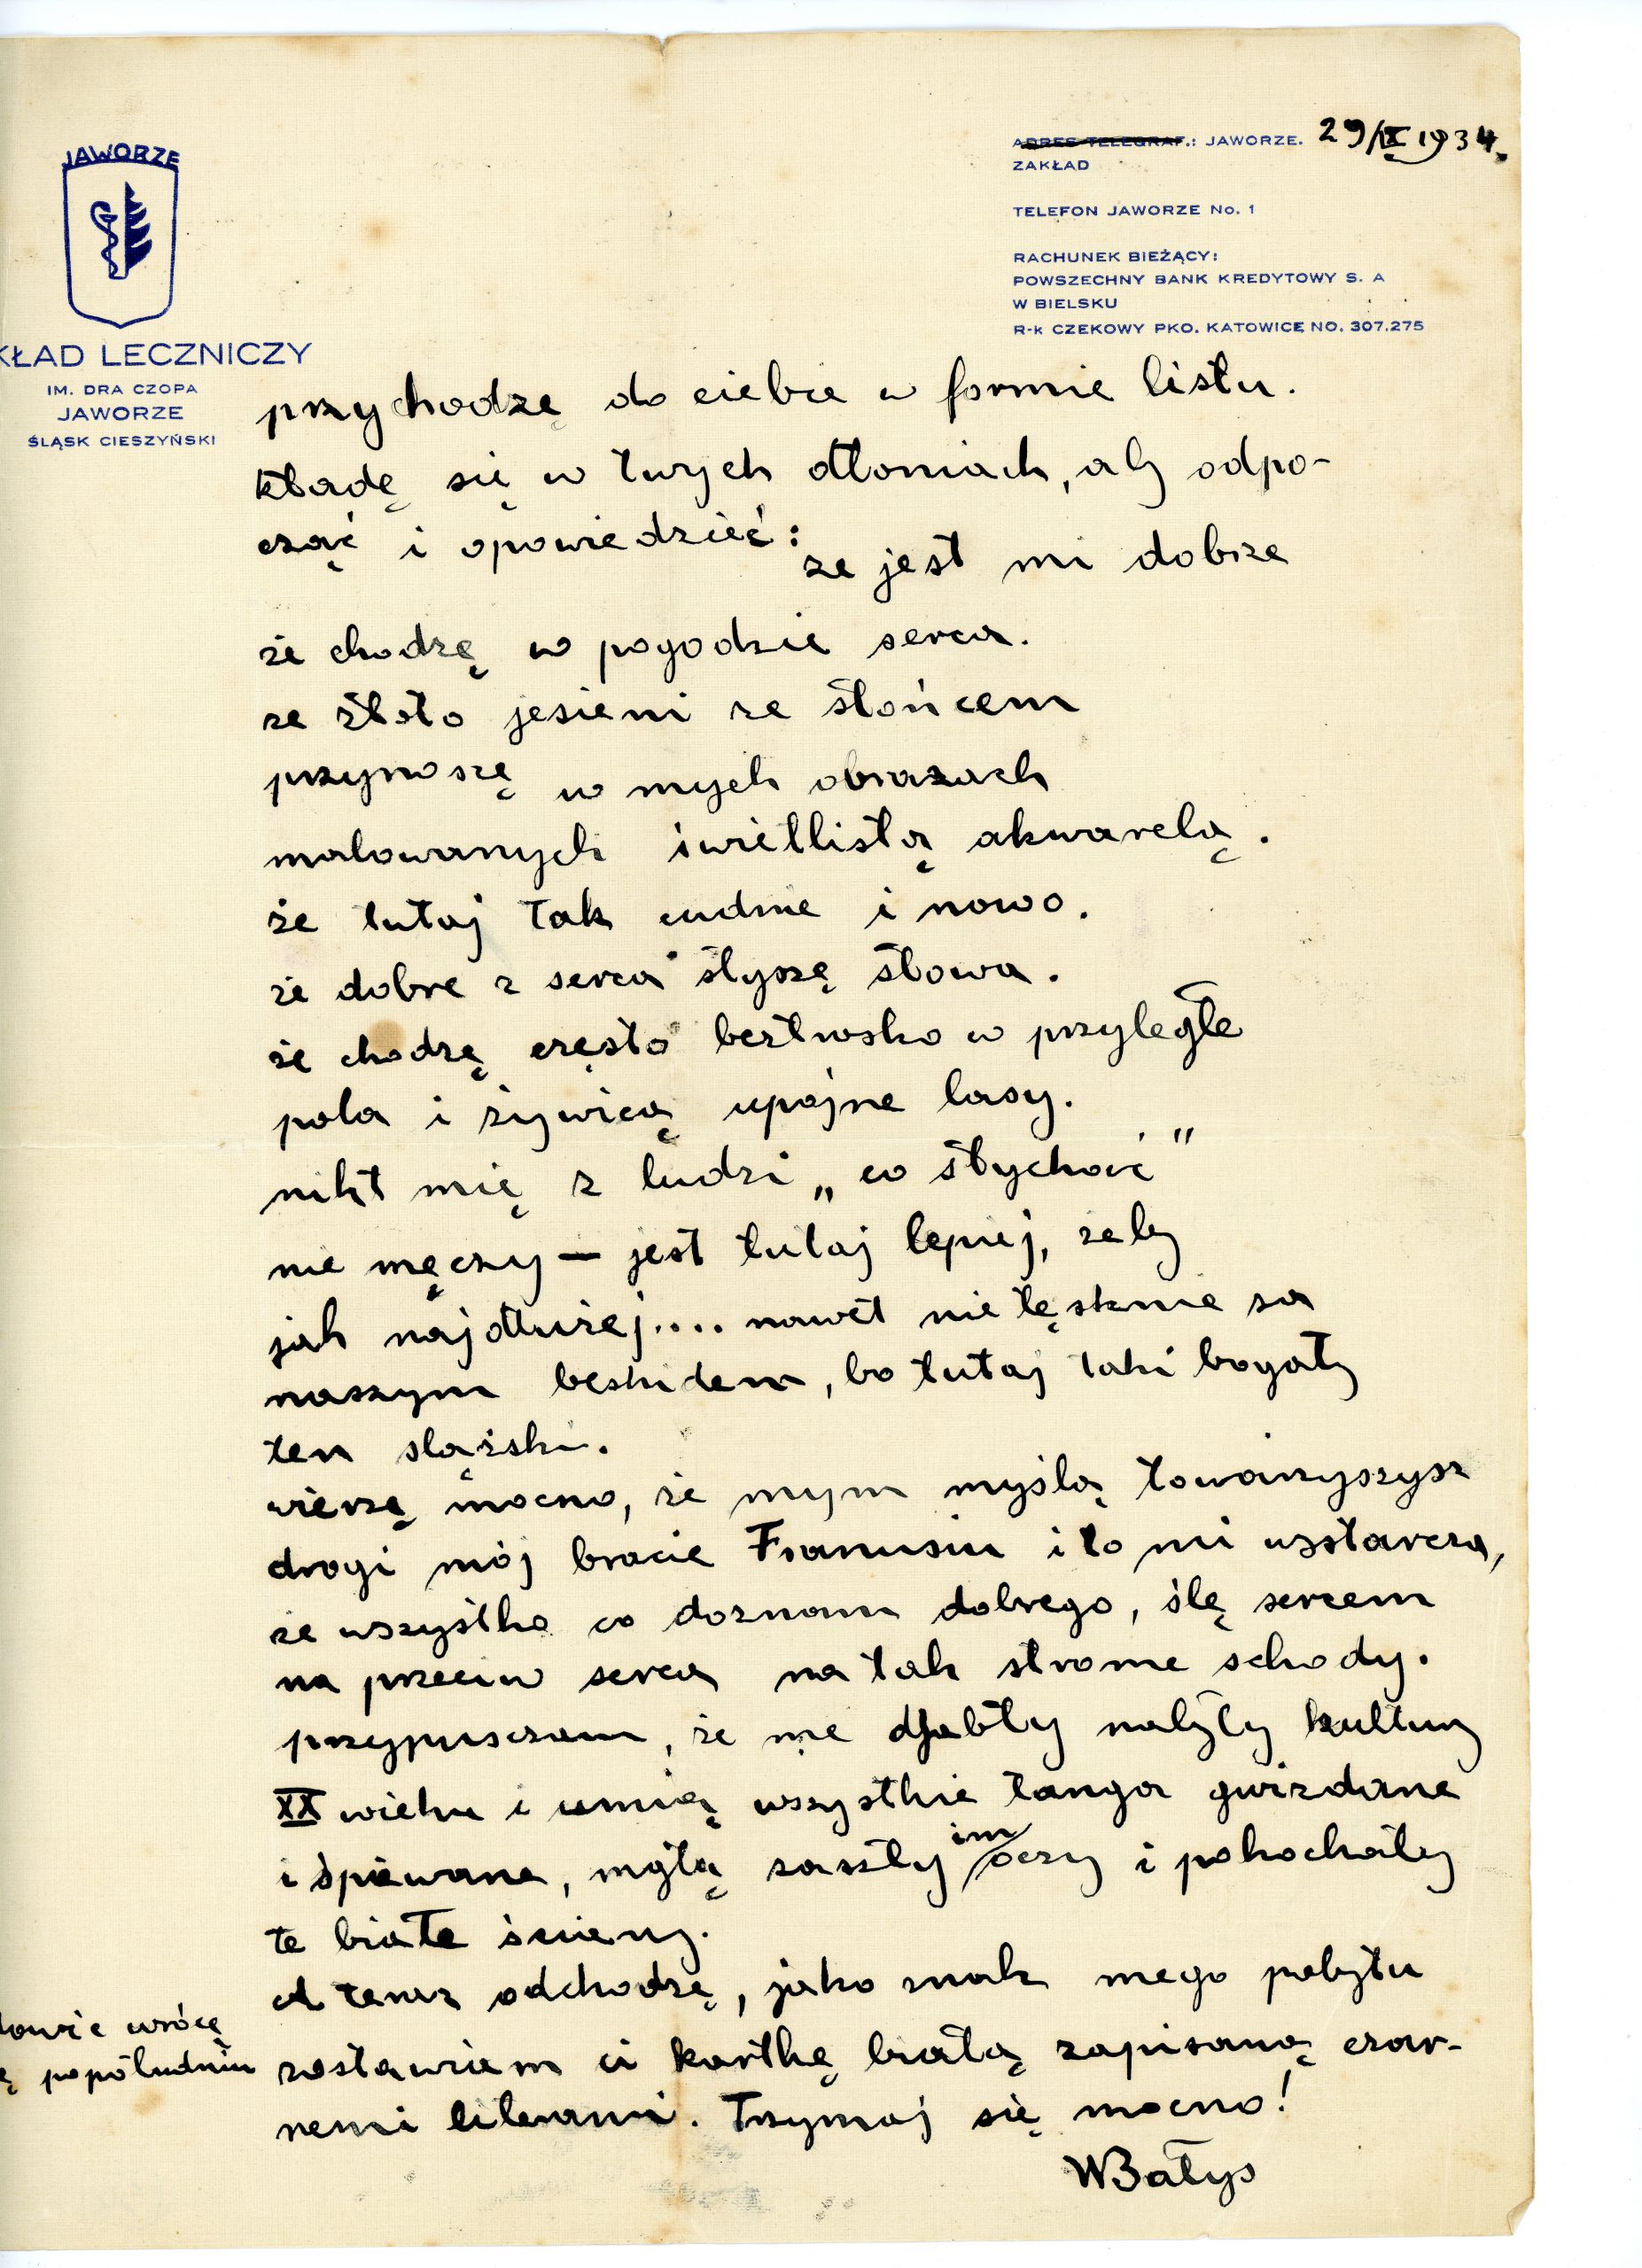 JAWORZE
KŁAD LECZNICZY
IM. DRA CZOPA
JAWORZE
ŚLĄSK CIESZYŃSKI
ADRES TELEGRAF.: JAWORZE. 29/IX 1934.
ZAKŁAD
TELEFON JAWORZE No. 1
RACHUNEK BIEŻĄCY:
POWSZECHNY BANK KREDYTOWY S. A
W BIELSKU
R-k CZEKOWY PKO. KATOWICE NO. 307.275
przychodzę do ciebie w formie listu.
kładę się w twych dłoniach, aby odpo-
cząć i opowiedzieć:
że jest mi dobrze
że chodzę w pogodzie serca.
że złoto jesieni ze słońcem
przynoszę w mych obrazach
malowanych świetlistą akwarelą.
że tutaj tak cudnie i nowo.
że dobre z serca słyszę słowa.
że chodzę często beztrosko w przyległe
pola i żywicą upojne lasy.
nikt mię z ludzi „co słychać"
nie męczy — jest tutaj lepiej, żeby
jak najdłużej.... nawet nie tęsknię za
naszym beskidem, bo tutaj taki bogaty
ten śląski.
wierzę mocno, że mym myślą towarzyszysz
drogi mój bracie Franusiu i to mi wystarcza,
że wszystko co doznam dobrego, ślę sercem
na przeciw serca na tak strome schody.
przypuszczam, że me djabły nabyły kultury
XX wieku i umią wszystkie tanga gwizdane
i śpiewane, mgłą zaszły im oczy i pokochały
te białe ściany.
A teraz odchodzę, jako znak mego pobytu
zostawiam ci kartkę białą zapisaną czar-
nemi literami. Trzymaj się mocno!
WBałys
wrócę
popołudniu